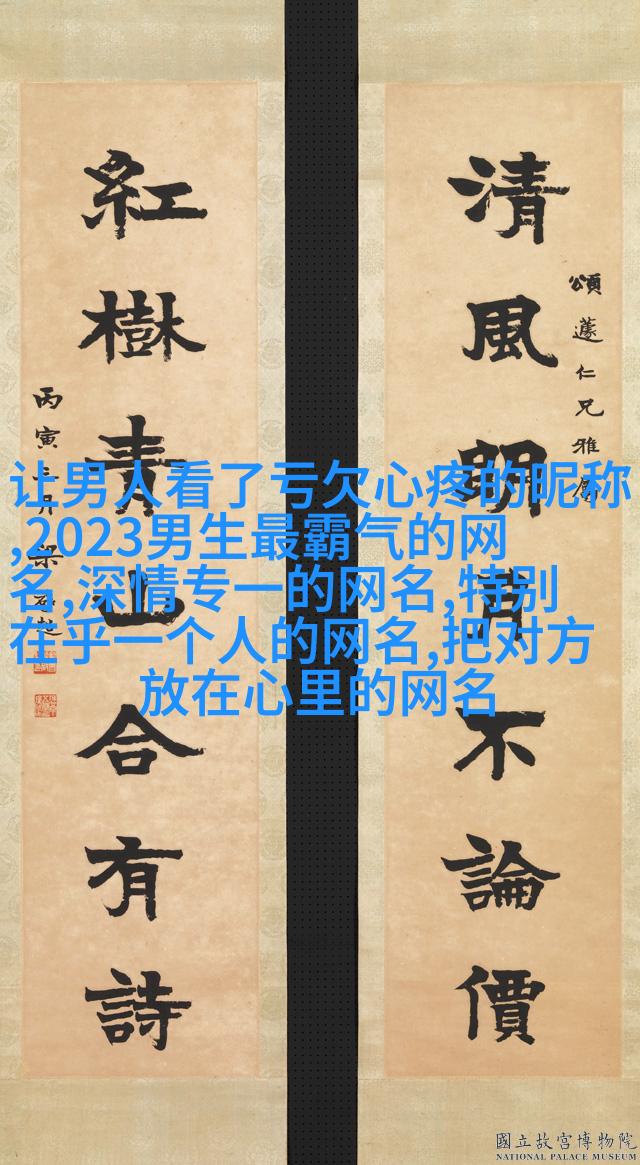 清風明月不論價
頌蘧仁兄雅屬
紅樹青山合有詩
丙寅三月梁啟超
让男人看了亏欠心疼的昵称
,2023男生最霸气的网
名,深情专一的网名,特别
在乎一个人的网名,把对方
放在心里的网名
國立故宮博物院
NATIONAL PALACE MUSEUM